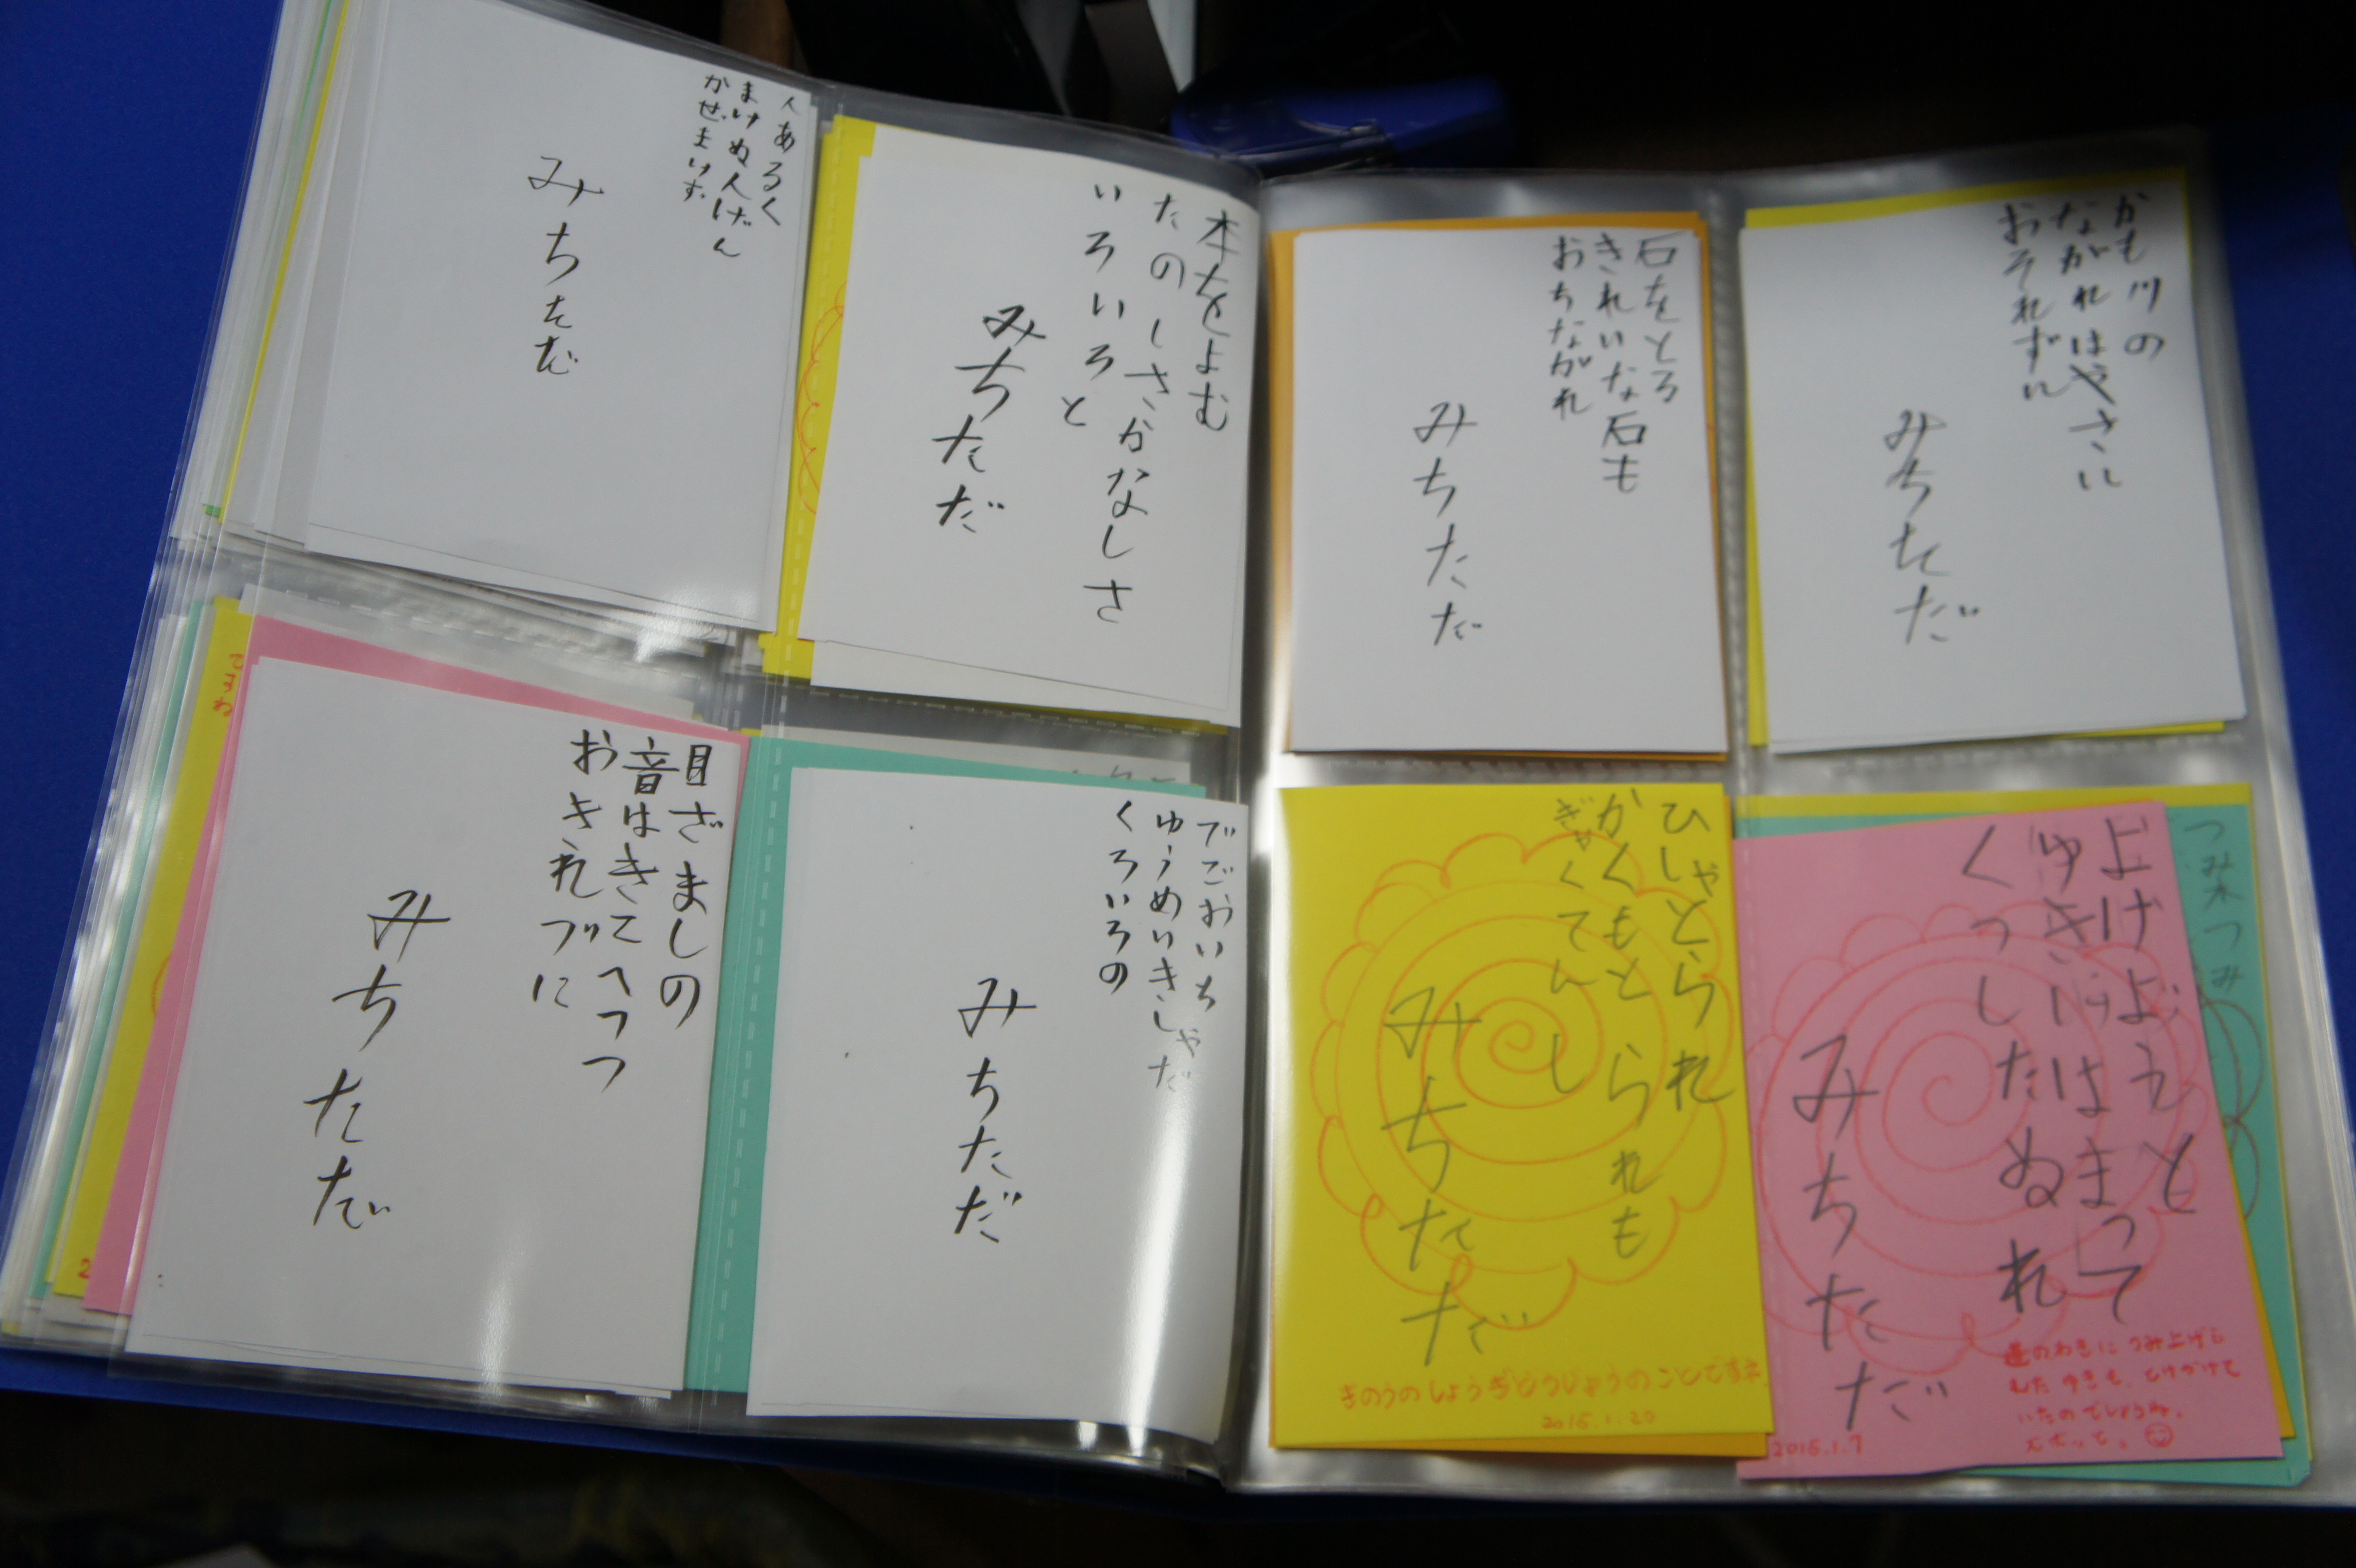 人あるく
まけぬ人げん
かぜまけず
みちただ
本をよむ
たのしさかなしさ
いろいろと
みちただ
目ざましの
音はきてへつつ
おきれづに
みちただ
でごおいち
ゆうめいきしゃだ
くろいろの
みちただ
石をとろ
きれいな石も
おちながれ
みちただ
かも川の
ながれはやさに
おそれずに
みちただ
ひしゃとられ
かくもとられも
ぎゃくてんし
みちただ
きのうのしょうぎどうじょうのことですネ
2016.1.20
よけ
くつしたぬれ
みちただ
道のわきにつみ上げら
いたのでしょうね。
2016.1.7
つみ木つみ